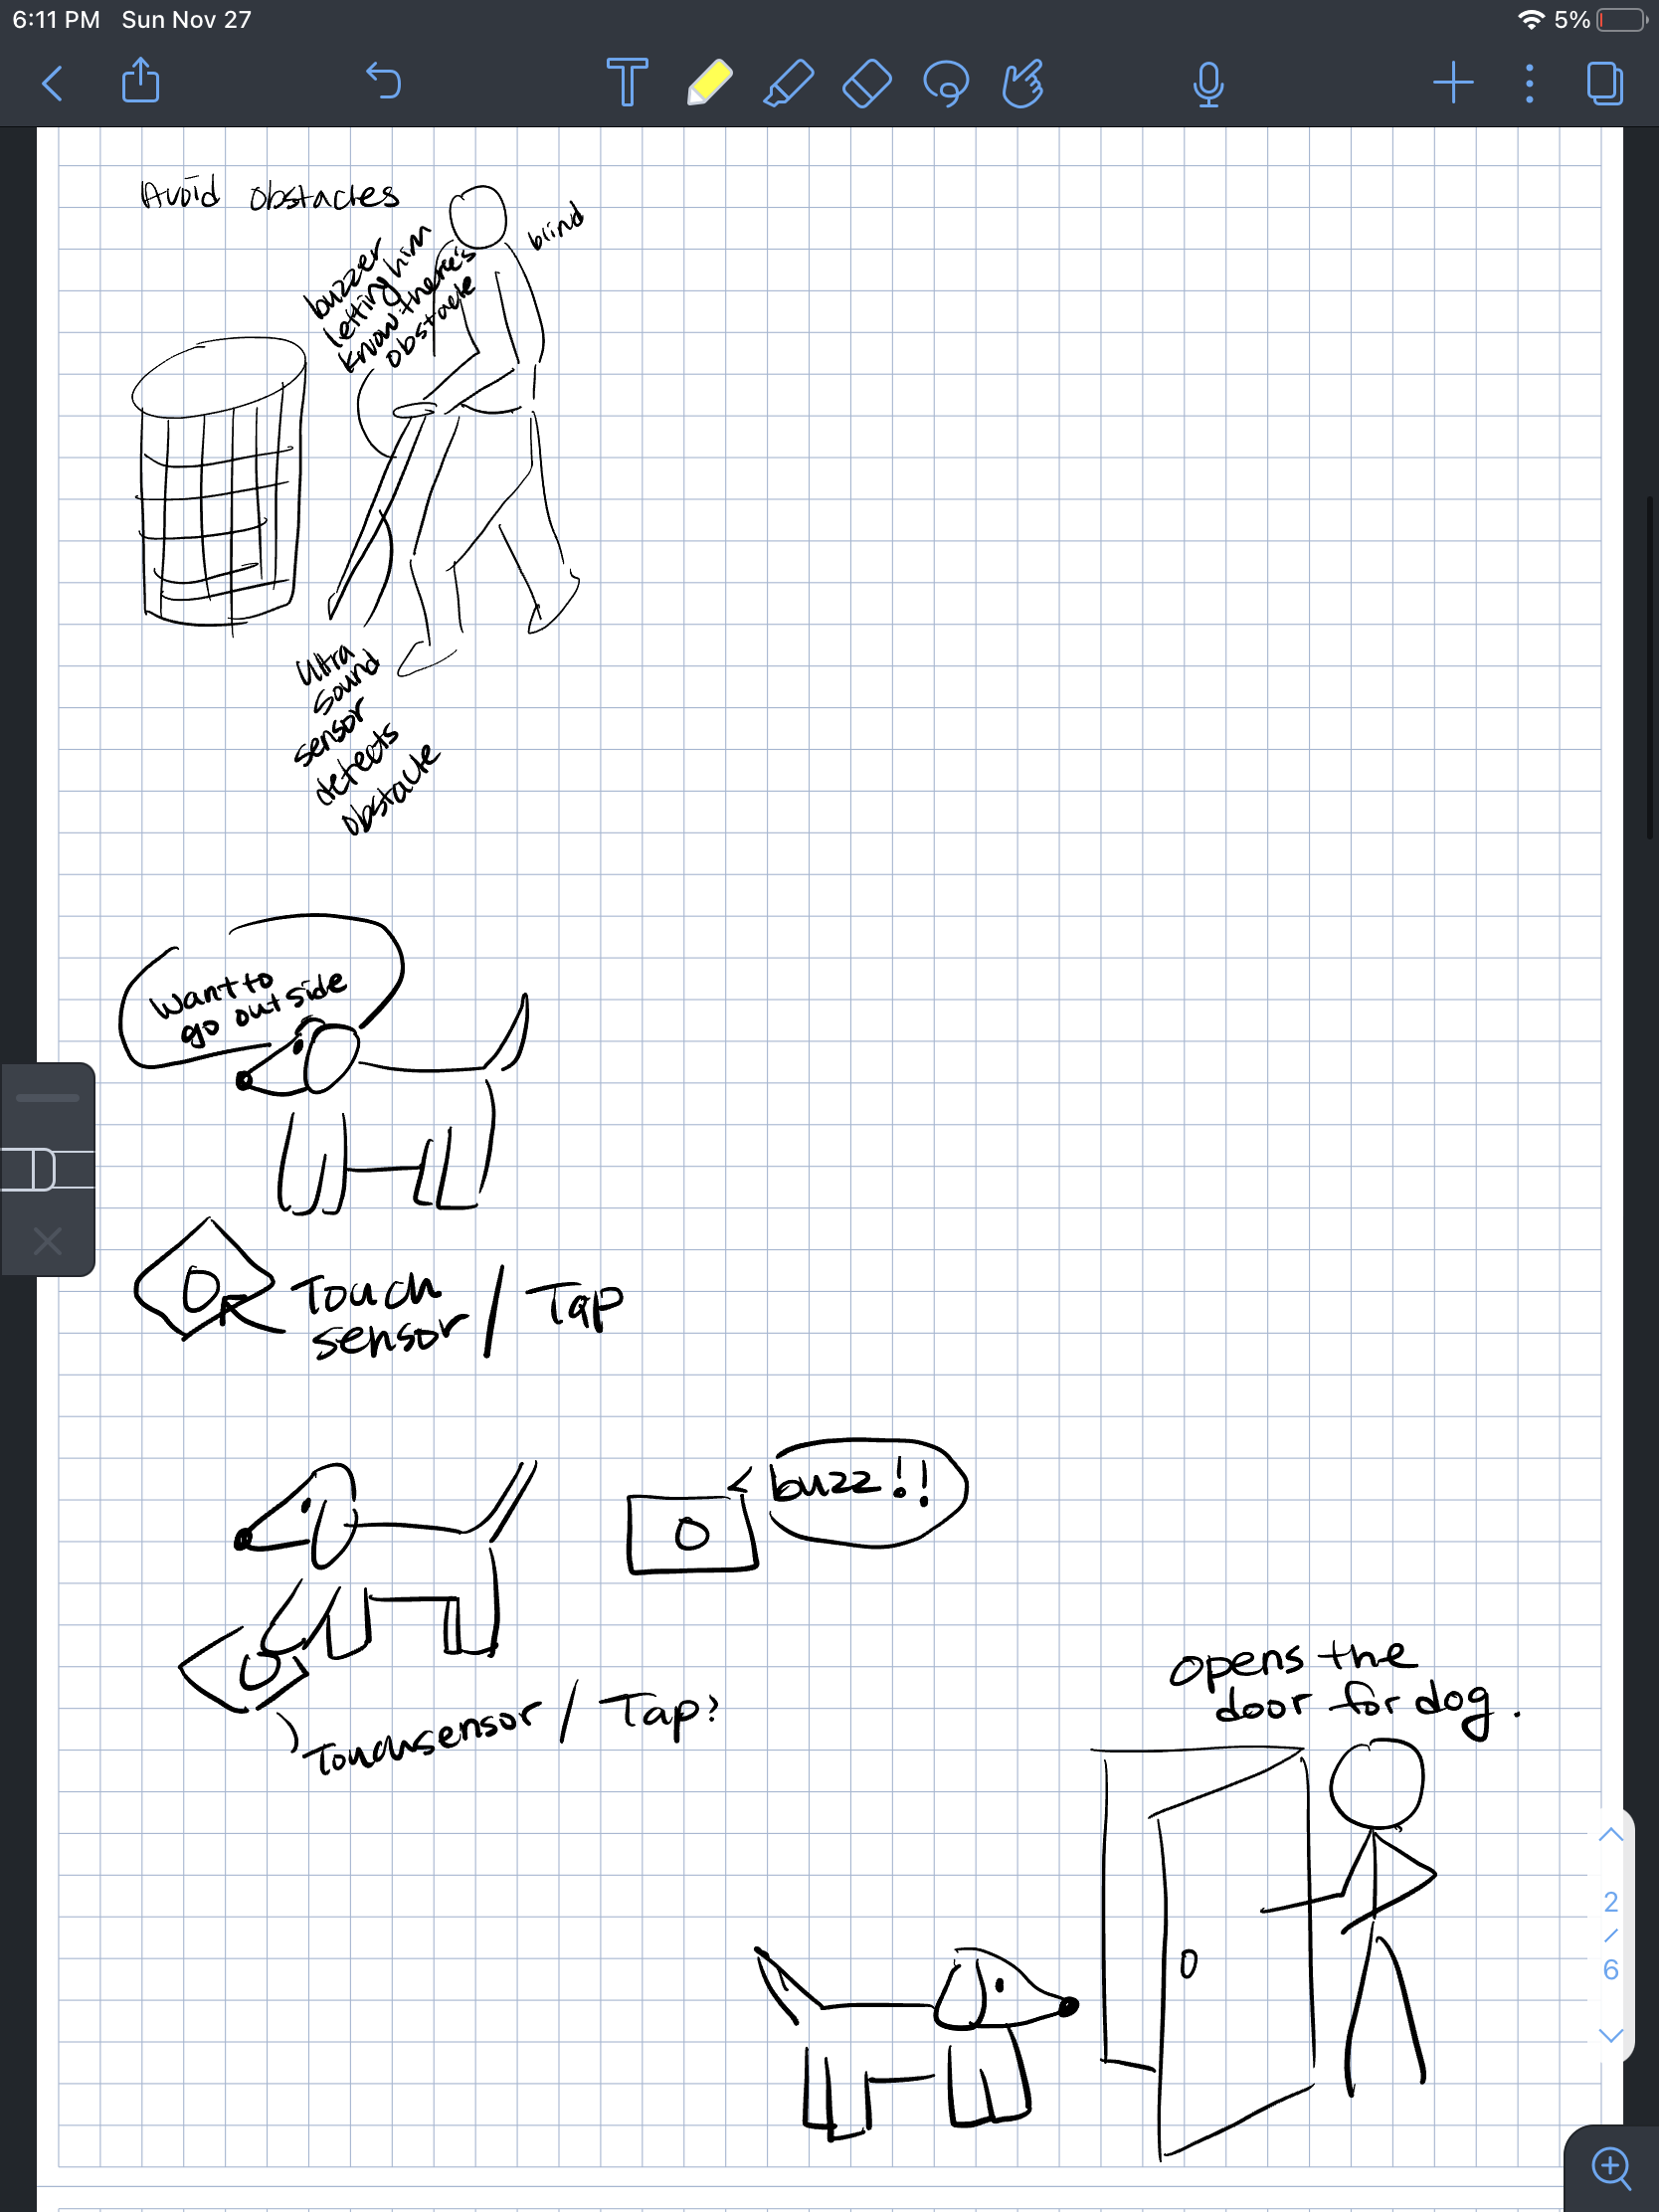 6:11 PM Sun Nov 27
5%
Avoid obstacles
blind
buzzer
letting him
know there's
obstacle
Ultra
sound
sensor
detects
obstacle
Want to
go outside
Touch
sensor / Tap
buzz!!
Touchsensor / Tap?
opens the
door for dog.
2
/
6